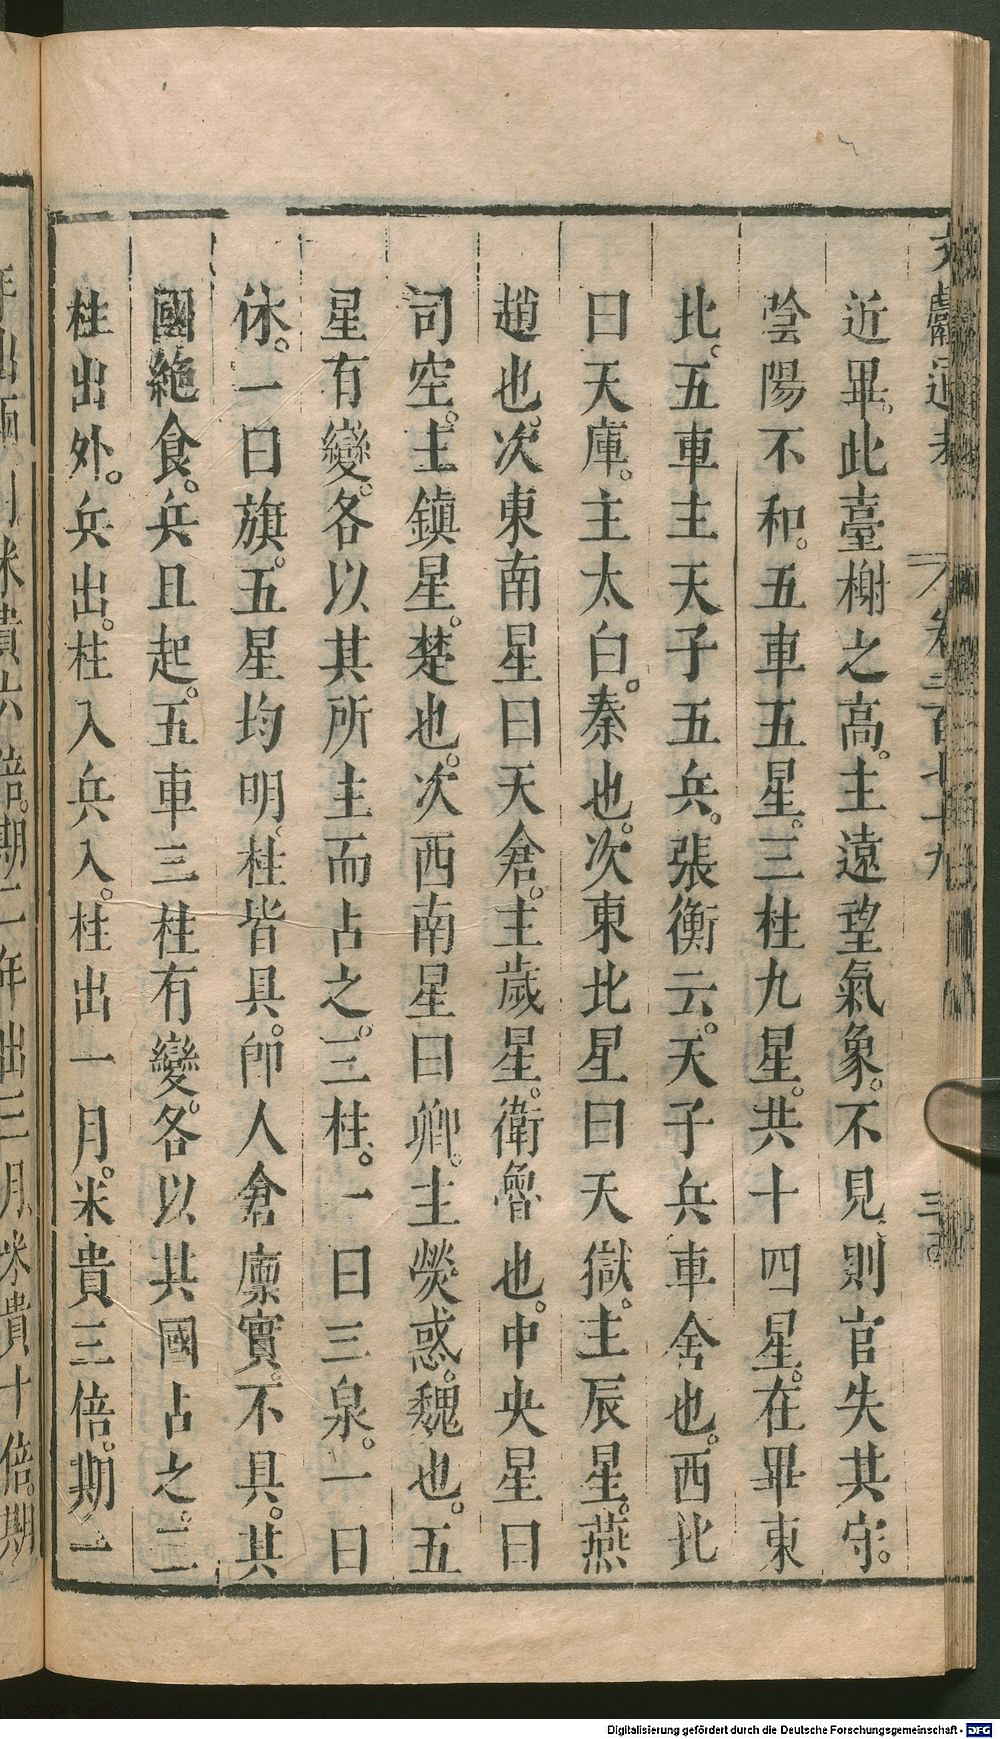 文獻通考 卷二百七十九
近畢。此臺榭之高。主遠望氣象。不見。則官失其守。
陰陽不和。五車五星。三柱九星。共十四星。在畢東
北。五車主天子五兵。張衡云。天子兵車舍也。西北
曰天庫。主太白。秦也。次東北星曰天獄。主辰星。燕
趙也。次東南星曰天倉。主歲星。衛魯也。中央星曰
司空。主鎮星。楚也。次西南星曰卿。主熒惑。魏也。五
星有變。各以其所主而占之。三柱。一曰三泉。一曰
休。一曰旗。五星均明。柱皆具。即人倉廩實。不具。其
國絶食。兵且起。五車三柱有變。各以其國占之。三
柱出外。兵出。柱入兵入。柱出一月。米貴三倍。期二
年出兩月米貴六倍。期二年出三月米貴十倍。期
Digitalisierung gefördert durch die Deutsche Forschungsgemeinschaft - DFG